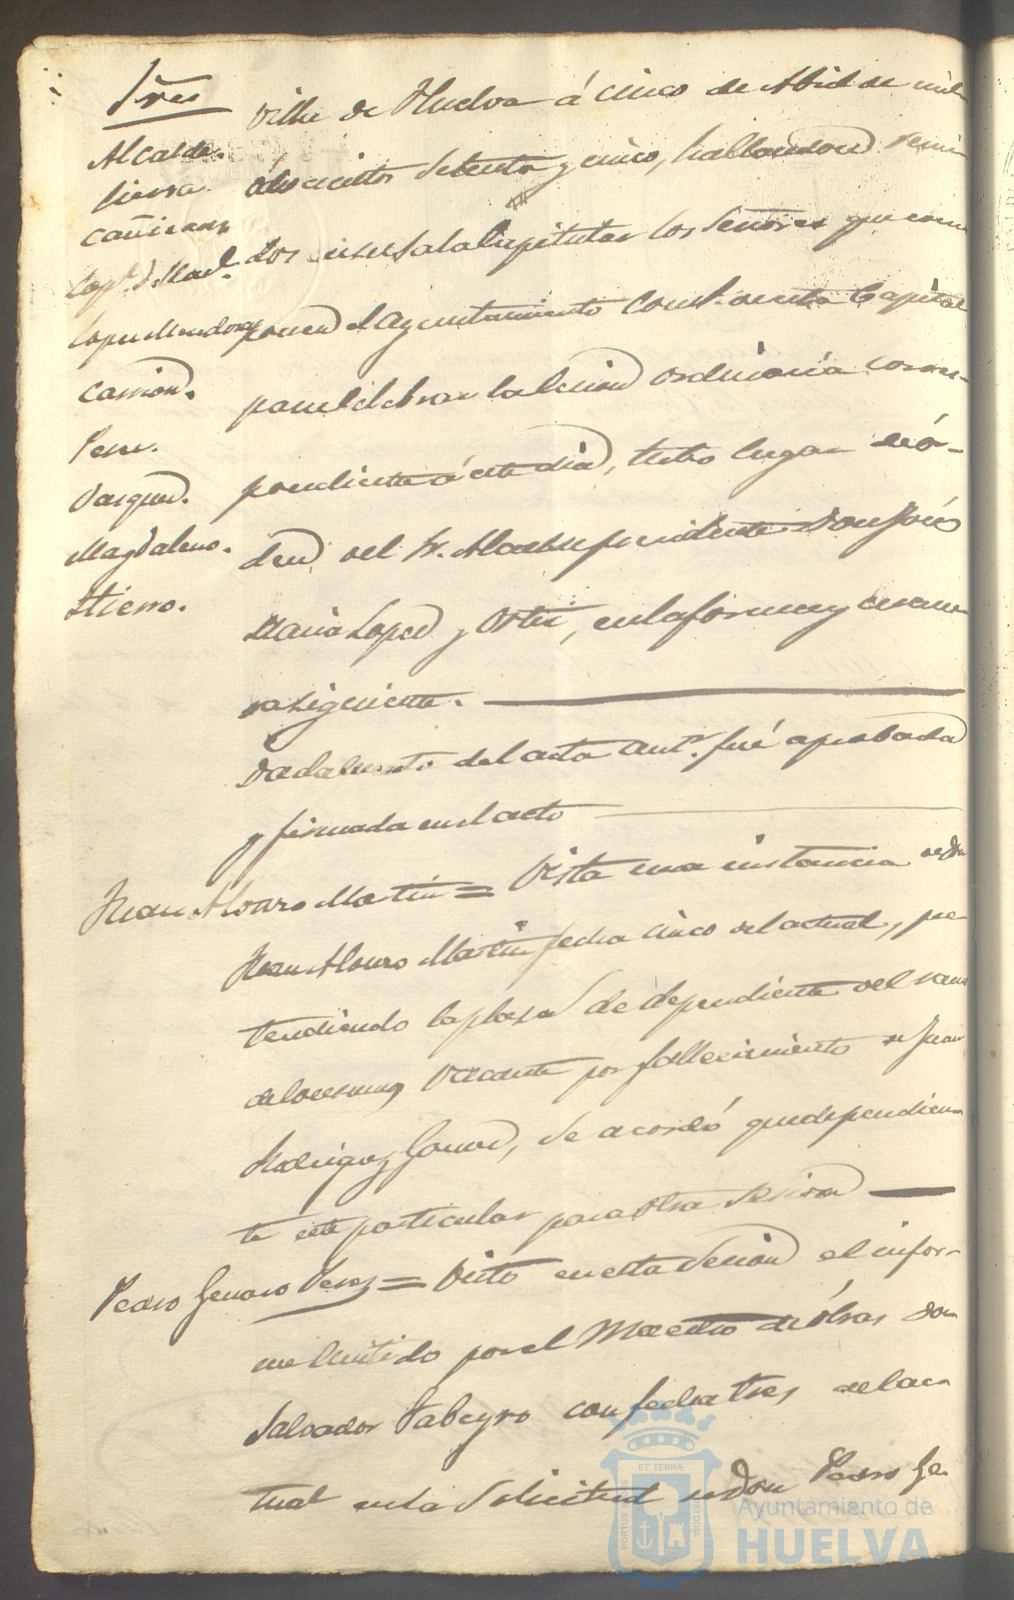 Sres
Alcalde.
Sierra.
Cañizares
Lopez Mendoza
Carrion.
Perez.
Vazquez.
Magdaleno.
Hierro.
Villa de Huelva á cinco de Abril de mil
ochocientos setenta y cinco, hallandose reuni
dos en su Sala Capitular los Señores que com
ponen el Ayuntamiento Const. de esta Capital
para celebrar la Sesion ordinaria corres-
pondiente á este dia, tubo lugar de ór-
den del Sr. Alcalde presidente Don José
Maria Lopez y Ortiz, en la forma y mane
ra siguiente.
Dada lectura del acta antr. fué aprobada
y firmada en el acto
Juan Alonso Martin = Vista una instancia de Don
Juan Alonso Martin fecha cinco del actual, pre
tendiendo la plaza de dependiente del ramo
de Consumos vacante por fallecimiento de Juan
Rodriguez Gomez, se acordó quede pendien
te este particular para otra sesion
Pedro Genaro Perez = Visto en esta Sesion el infor-
me emitido por el Maestro de óbras Don
Salvador Tabeyro con fecha tres del ac
tual en la Solicitud de Don Pedro Ge
ET TERRA
PORTUS MARIS
CUSTODIA
Ayuntamiento de
HUELVA